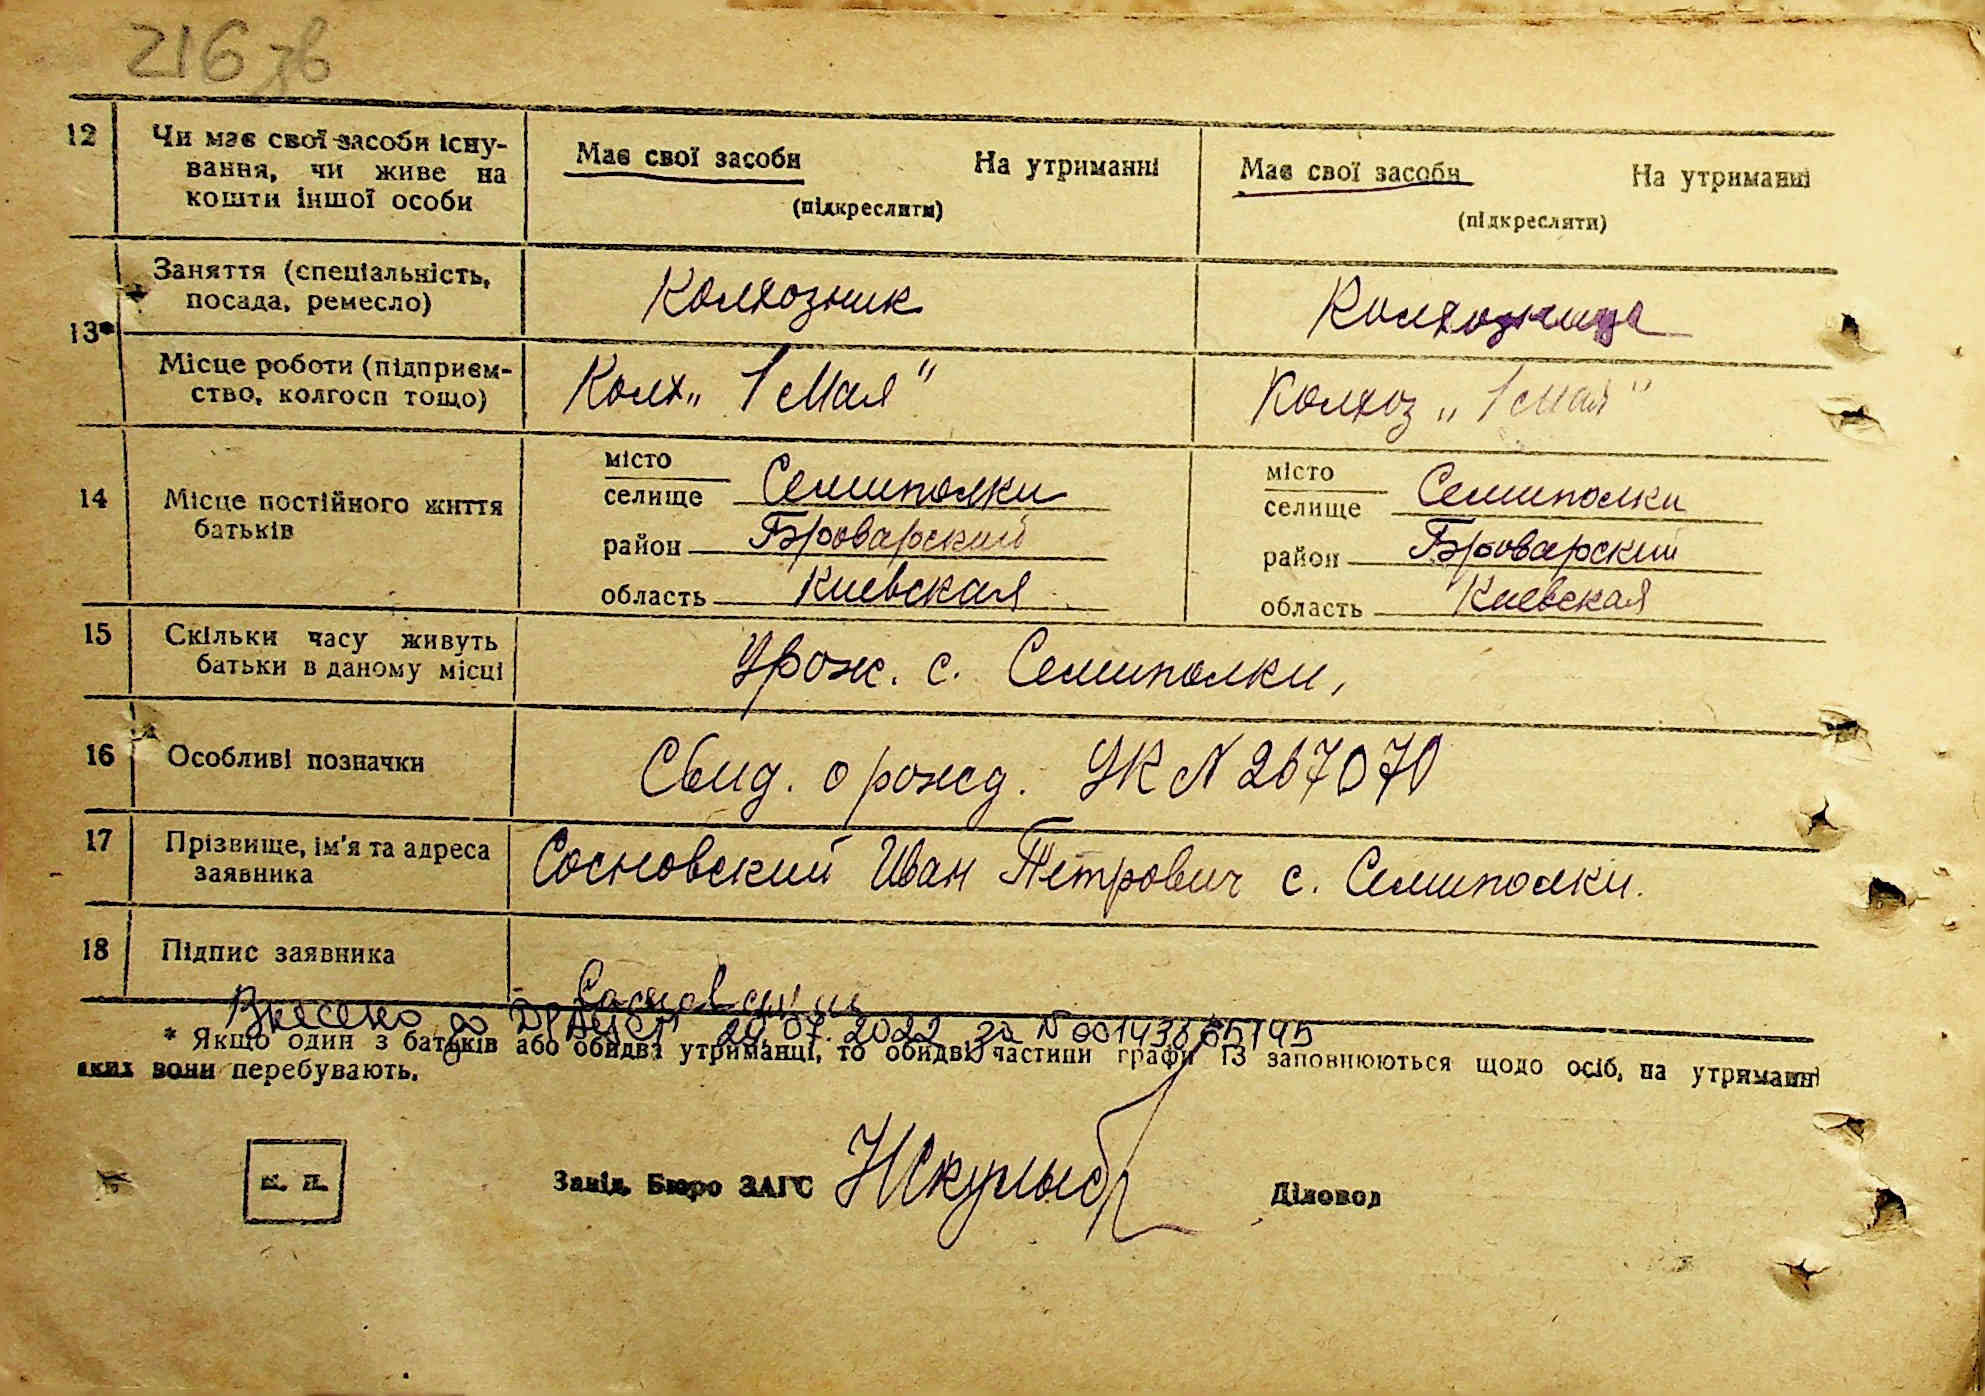 216 зв
12 Чи має свої засоби існу- Має свої засоби На утриманні Має свої засоби На утриманні
вання, чи живе на
кошти іншої особи (підкреслити) (підкресляти)
13* Заняття (спеціальність, Колхозник Колхозница
посада, ремесло)
Місце роботи (підприєм- Колх „1 Мая" Колхоз „1 Мая"
ство, колгосп тощо)
14 Місце постійного життя
батьків
місто місто
селище Семиполки селище Семиполки
район Броварский район Броварский
область Киевская область Киевская
15 Скільки часу живуть Урож. с. Семиполки,
батьки в даному місці
16 Особливі позначки Свид. о рожд. УК N 267070
17 Прізвище, ім'я та адреса Сосновский Иван Петрович с. Семиполки.
заявника
18 Підпис заявника Сосновский
Внесено до ДРАЦСГ 29.07.2022 за N
* Якщо один з батьків або обидва утриманці, то обидві частини графи 13 заповнюються щодо осіб, на утриманні
яких вони перебувають.
м. п. Завід. Бюро ЗАГС Діловод